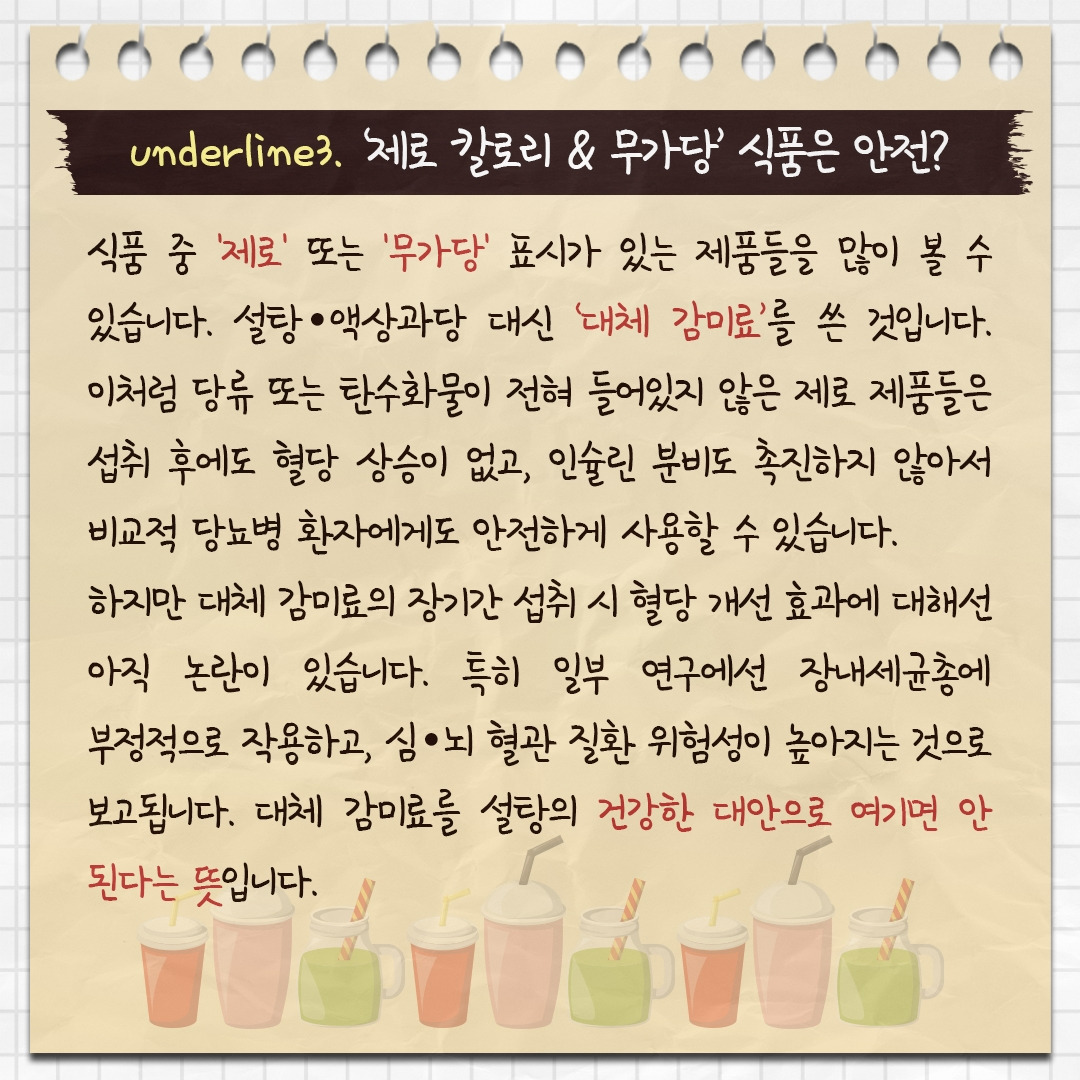 underline3. '제로 칼로리 & 무가당' 식품은 안전?
식품 중 '제로' 또는 '무가당' 표시가 있는 제품들을 많이 볼 수
있습니다. 설탕•액상과당 대신 '대체 감미료'를 쓴 것입니다.
이처럼 당류 또는 탄수화물이 전혀 들어있지 않은 제로 제품들은
섭취 후에도 혈당 상승이 없고, 인슐린 분비도 촉진하지 않아서
비교적 당뇨병 환자에게도 안전하게 사용할 수 있습니다.
하지만 대체 감미료의 장기간 섭취 시 혈당 개선 효과에 대해선
아직 논란이 있습니다. 특히 일부 연구에선 장내세균총에
부정적으로 작용하고, 심•뇌 혈관 질환 위험성이 높아지는 것으로
보고됩니다. 대체 감미료를 설탕의 건강한 대안으로 여기면 안
된다는 뜻입니다.